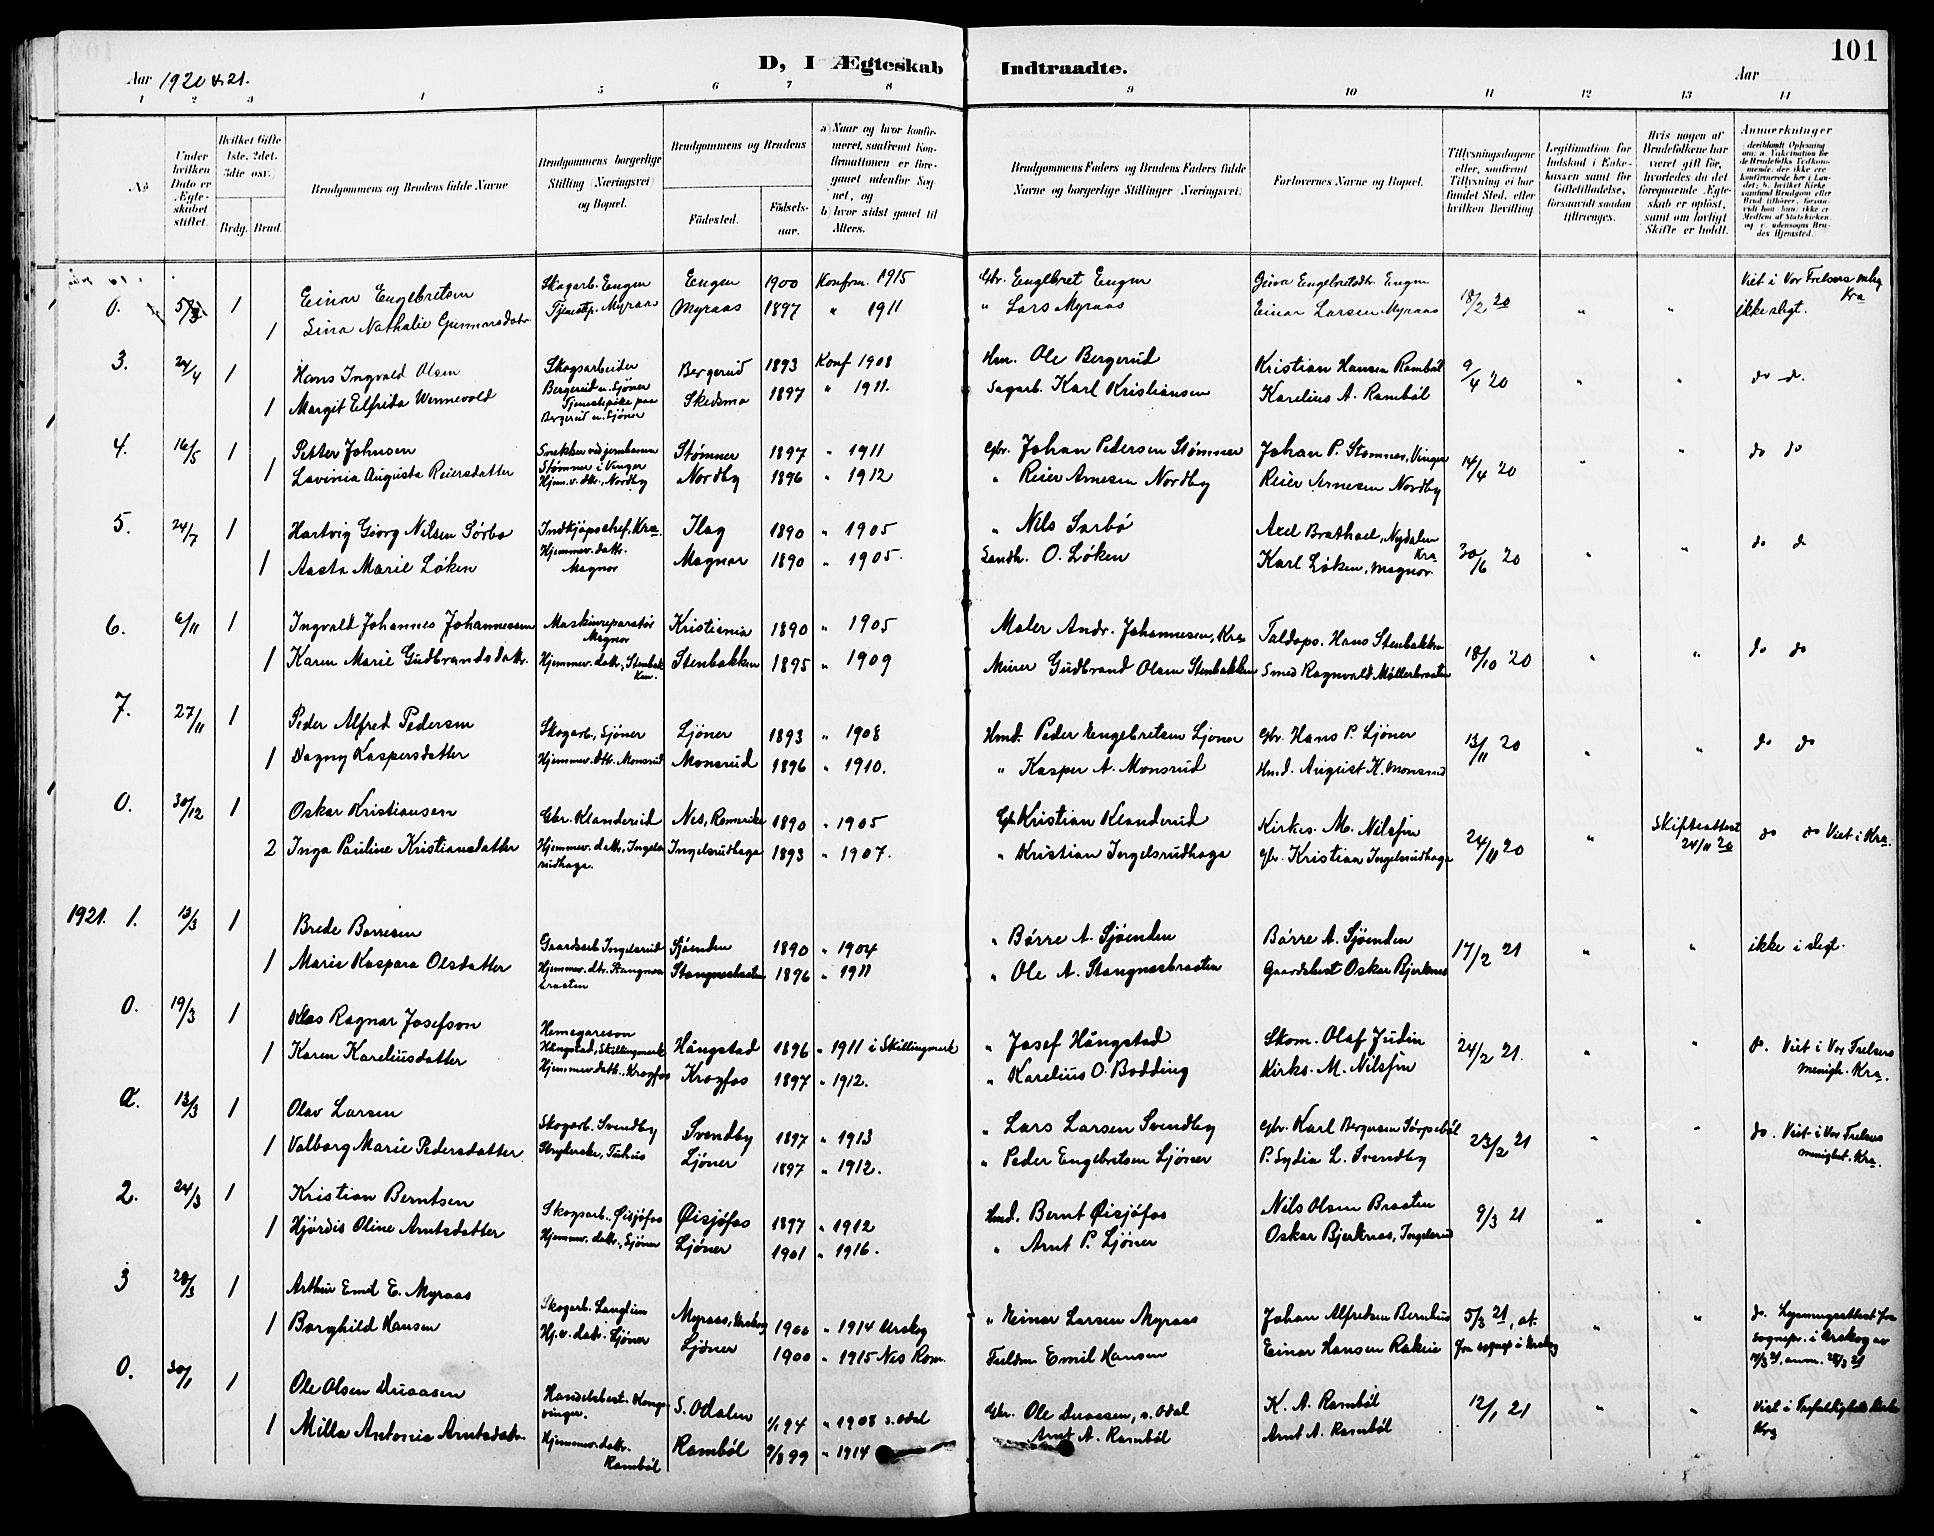 101
Aar 1920 & 21.
D, I Ægteskab Indtraadte.
Aar
1 2 3 4 5 6 7 8 9 10 11 12 13 14
No
Under hvilken Dato er Ægteskabet stiftet.
Hvilket Gifte 1ste, 2det, 3die osv.
Brdg. Brud.
Brudgommens og Brudens fulde Navne
Brudgommens borgerlige Stilling (Næringsvei) og Bopæl.
Brudgommens og Brudens
Fødested. Fødselsaar.
a) Naar og hvor konfirmeret, saafremt Konfirmationen er foregaaet udenfor Sognet, og
b) hvor sidst gaaet til Alters.
Brudgommens Faders og Brudens Faders fulde Navne og borgerlige Stillinger (Næringsvei).
Forlovernes Navne og Bopæl.
Tillysningsdagene eller, saafremt Tillysning ei har fundet Sted, efter hvilken Bevilling.
Legitimation for Indskud i Enkekassen samt for Giftetilladelse, forsaavidt saadan tiltrænges.
Hvis nogen af Brudefolkene har været gift før, hvorledes da det foregaaende Ægteskab er opløst, samt om lovligt Skifte er holdt.
Anmerkninger
0. 1 Einar Engebretsen Skogarb. Engen Engen 1900 Konfirm. 1915 Gbr. Engelbret Engen 18/2 20 " " Viet i Vor Frelsers menig. Kra
1 Lina Nathalie Gunnarsdatr Tjenestep. Myraas Myraas 1897 " 1911 " Lars Myraas Einar Larsen Myraas ikke slegt.
3. 24/4 1 Hans Ingvald Olsen Skogsarbeider Bergerud n. Sjöner Bergerud 1893 Konf 1908 Hm. Ole Bergerud Kristian Hansen Rambøl 9/4 20 " " do do.
1 Margit Elfrida Wennevold Tjenestepike paa Bergerud n. Sjöner Skedsmo 1897 " 1911. Sagarb. Karl Kristiansen Karelius A. Rambøl
4. 16/5 1 Petter Johnsen Snekker ved jernbanen Stømner i Vinger Stømner 1897 " 1911 Gbr. Johan Pedersen Stømner Johan P. Stømner, Vinger 14/4 20 " " do do
1 Lovinia Augusta Reiersdatter Hjem.v. dtr., Nordby Nordby 1896 " 1912 " Reier Arnesen Nordby Reier Arnesen Nordby
5. 24/7 1 Hartvig Georg Nilsen Sørbø Indkjøpschef, Kra Ilag 1890 " 1905 " Nils Sørbø Axel Brathael, Nydalen Kra 30/6 20 " " do d
1 Aasta Marie Løken Hjemmev. datr. Magnor Magnor 1890 " 1905. Landh. O. Løken Karl Løken, Magnor
6. 6/11 1 Ingvald Johannes Johannessen Maskinreparatør Magnor Kristiania 1890 " 1905 Maler Andr. Johannesen, Kra Hans Stenbakken 18/10 20 " " do do
1 Karen Marie Gudbrandsdatr. Hjemmev. datr., Stenbakken. Stenbakken 1895 " 1909 Murer Gudbrand Olsen Stenbakken Smed Ragnvald Møllerbraaten
7. 27/11 1 Peder Alfred Pedersen Skogarb., Sjöner Ljöner 1893 " 1908 Hmd. Peder Engebretsen Ljöner Gbr. Hans P. Ljöner 13/11 20 " " do do
1 Dagny Kaspersdatter Hjemmev. dtr. Monsrud Monsrud 1896 " 1910. " Kasper A. Monsrud Hmd. August K. Monsrud
0. 30/12 1 Oskar Kristiansen Gbr. Klanderud Nes, Romerike 1890 " 1905 Gb Kristian Klanderud Kirkes. M. Nilsfin 24/11 20 " Skifteattest 24/11 20 do do Viet i Kra.
2 Inga Pauline Kristiansdatter Hjemmev. datr., Ingelsrudhaga. Ingelsrudhaga 1893 " 1907. " Kristian Ingelsrudhaga Gbr. Kristian Ingelsrudhaga
1921. 1. 13/3 1 Brede Børresen Gaardsarb Ingelsrud Sjøenden 1890 " 1904 " Børre A. Sjøenden Børre A. Sjøenden 17/2 21 " " ikke i slegt.
1 Marie Kaspara Olsdatter Hjemmev. dtr. Stangnesbraaten Stangnesbraaten 1896 " 1911 " Ole A. Stangnesbraaten Gaardsbest Oskar Bjerknes
0. 19/3 1 Klas Ragnar Josefson Hemagareson Hångstad, Skillingmark Hångstad 1896 " 1911 i Skillingmark " Josef Hångstad Skom. Olaf Judin 24/2 21. " " do. Viet i Vor Frelsers menigh. Kra.
1 Karen Kareliusdatter Hjemmev datr. Krogfos Krogfos 1897 " 1912. " Karelius O. Bodding Kirks. M. Nilsfin
a. 13/3 1 Olav Larsen Skogarb. Svendby Svendby 1897 " 1913 " Lars Larsen Svendby Gbr. Karl Bergersen Sørpebøl 23/2 21 " " do. Viet i Vor Frelsers menighet. Kra.
1 Valborg Marie Pedersdatter Strykerske, Tuhus Ljöner 1897 " 1912. " Peder Engebretsen Ljöner P. Lydia L. Svendby
2. 24/3 1 Kristian Berntsen Skogsarb. Øisjøfos Øisjøfos 1897 " 1912 Hmd. Bernt Øisjøfos Nils Olsen Braaten 9/3 21 " "
1 Hjørdis Oline Arntsdatter Hjemmev. datr., Sjöner Ljöner 1901 " 1916. " Arnt P. Ljöner Oskar Bjerknes, Ingelsrud
3 28/3 1 Arthur Emil E. Myraas Skogarb. Langlien Myraas, Urskog 1900 " 1914 Urskog " Einar Larsen Myraas Johan Alfredsen Bernhus 5/3 21, at. fra sognep. i Urskog " " do. Lysningsattest fra sognepr. i Urskog av 19/3 21, anm. 28/3 21
1 Borghild Hansen Hj.v. datr. Sjöner Ljöner 1900 " 1915 Nes Rom. Emil Hansen Einar Hansen Rakeie
0. 30/1 1 Ole Olsen Duaasen Handelsbest. Kongsvinger. S. Odalen 1/1 94 " 1908 s. Odal Gbr. Ole Duaasen, s. Odal K. A. Rambøl 12/1 21 " " Viet i Trefoldigheds kirke Kra
1 Milla Antonie Arntsdatr. Hjemmev. datr. Rambøl Rambøl 9/8 99 " 1914 Arnt A. Rambøl Arnt A. Rambøl